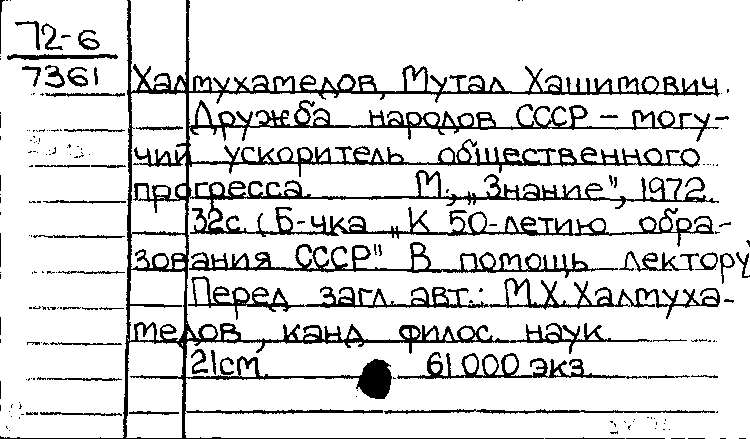 72-6
7361
Халмухамедов, Мутал Хашимович.
Дружба народов СССР – могу-
чий ускоритель общественного
прогресса. М., „Знание", 1972.
32с. (Б-чка „К 50-летию обра-
зования СССР". В помощь лектору
Перед загл. авт.: М.Х. Халмуха-
медов, канд филос. наук.
21см. 61 000 экз.